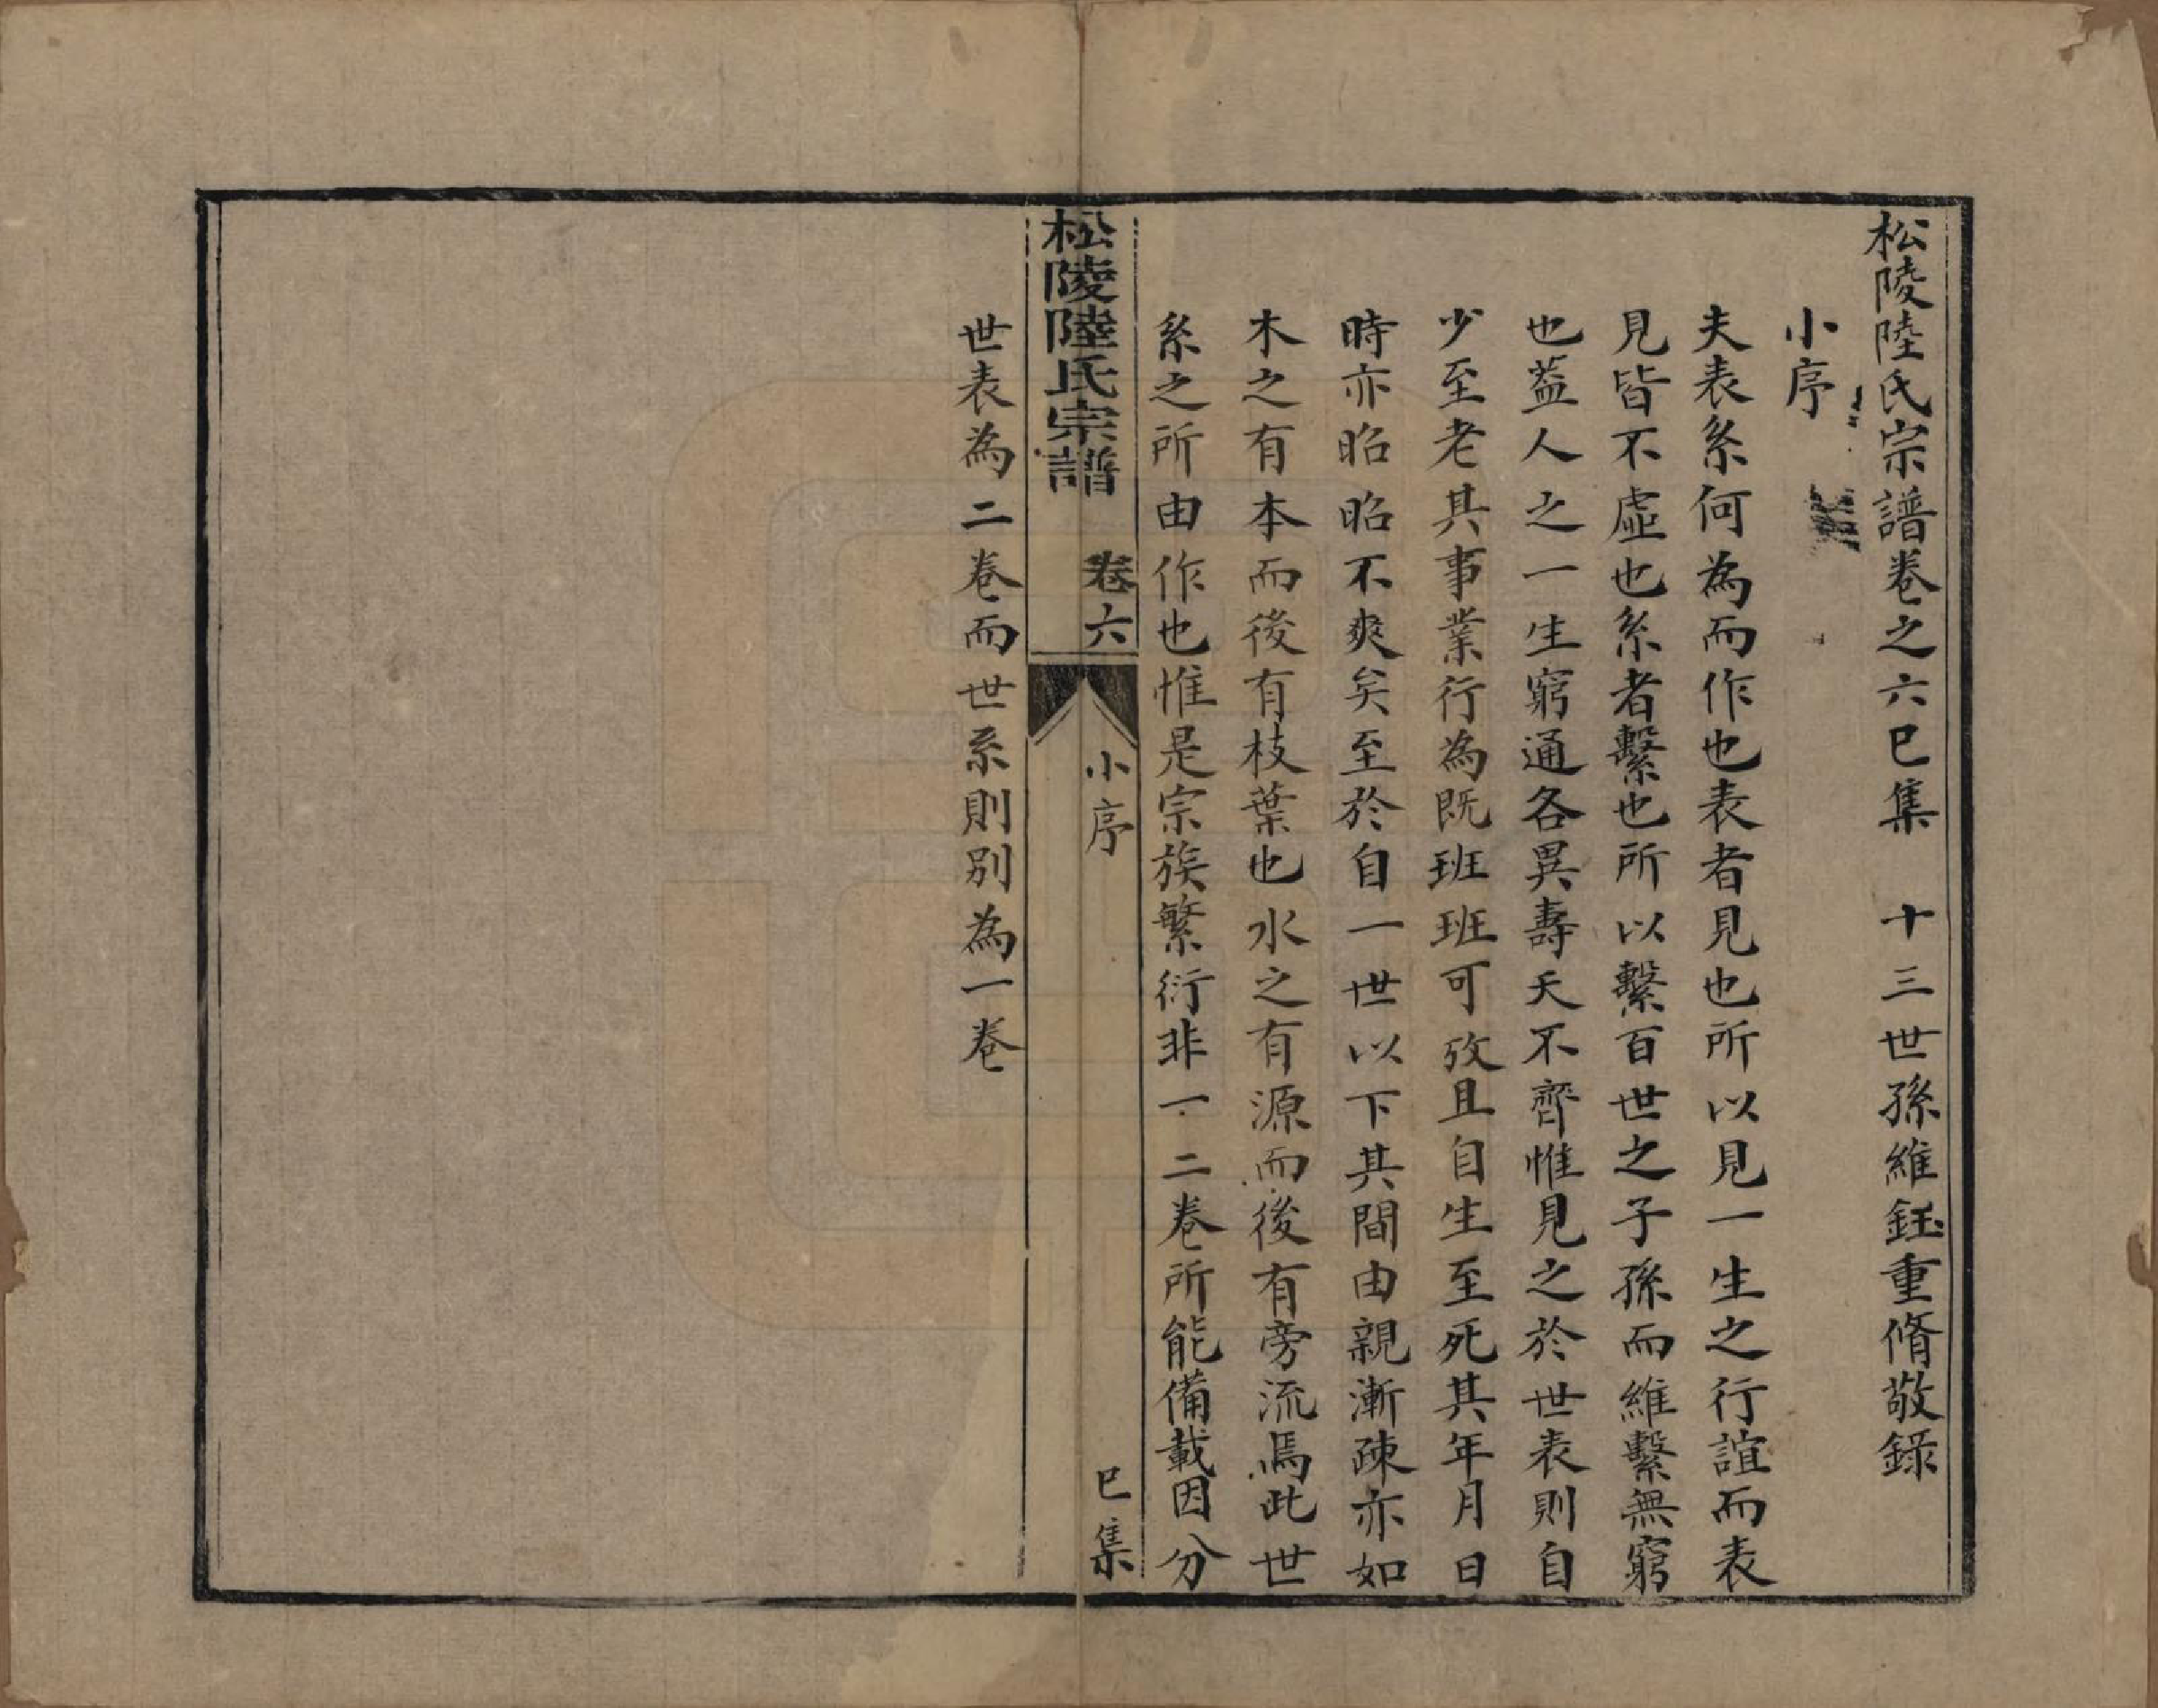 松陵陸氏宗譜卷之六巳集　十三世孫維鈺重脩敬錄
小序
夫表系何為而作也表者見也所以見一生之行誼而表
見皆不虛也系者繫也所以繫百世之子孫而維繫無窮
也葢人之一生窮通各異壽夭不齊惟見之於世表則自
少至老其事業行為既班班可攷且自生至死其年月日
時亦昭昭不爽矣至於自一世以下其間由親漸疎亦如
木之有本而後有枝葉也水之有源而後有旁流焉此世
系之所由作也惟是宗族繁衍非一二卷所能備載因分
松陵陸氏宗譜　卷六　小序　巳集
世表為二卷而世系則別為一卷